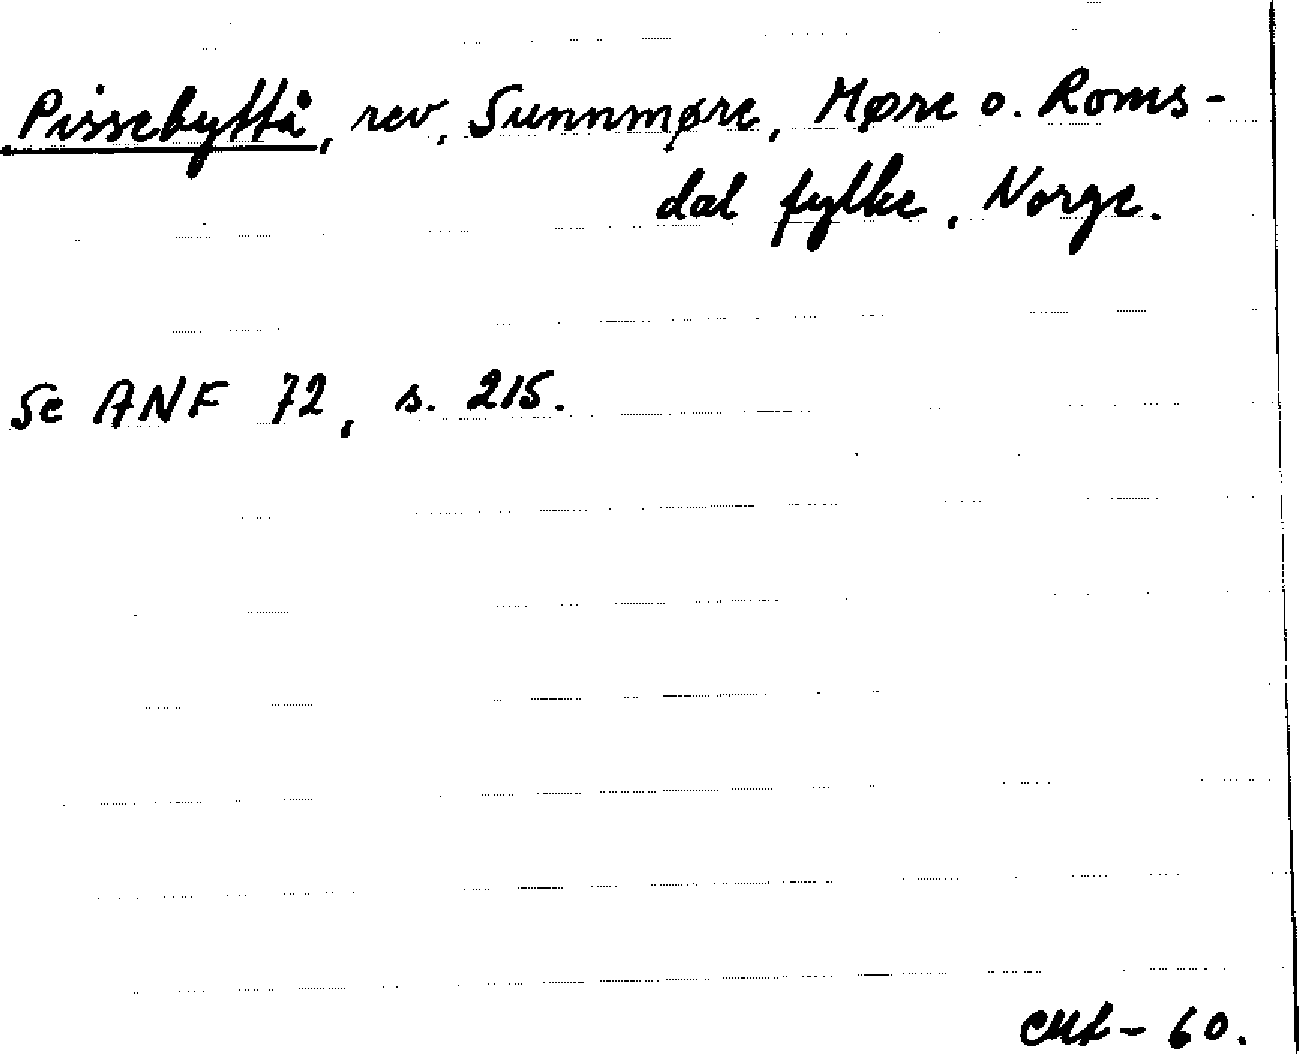 Pissebyttå, rev, Sunnmøre, Møre o. Roms-
dal fylke, Norge.
Se ANF 72, s. 215.
CML - 60.